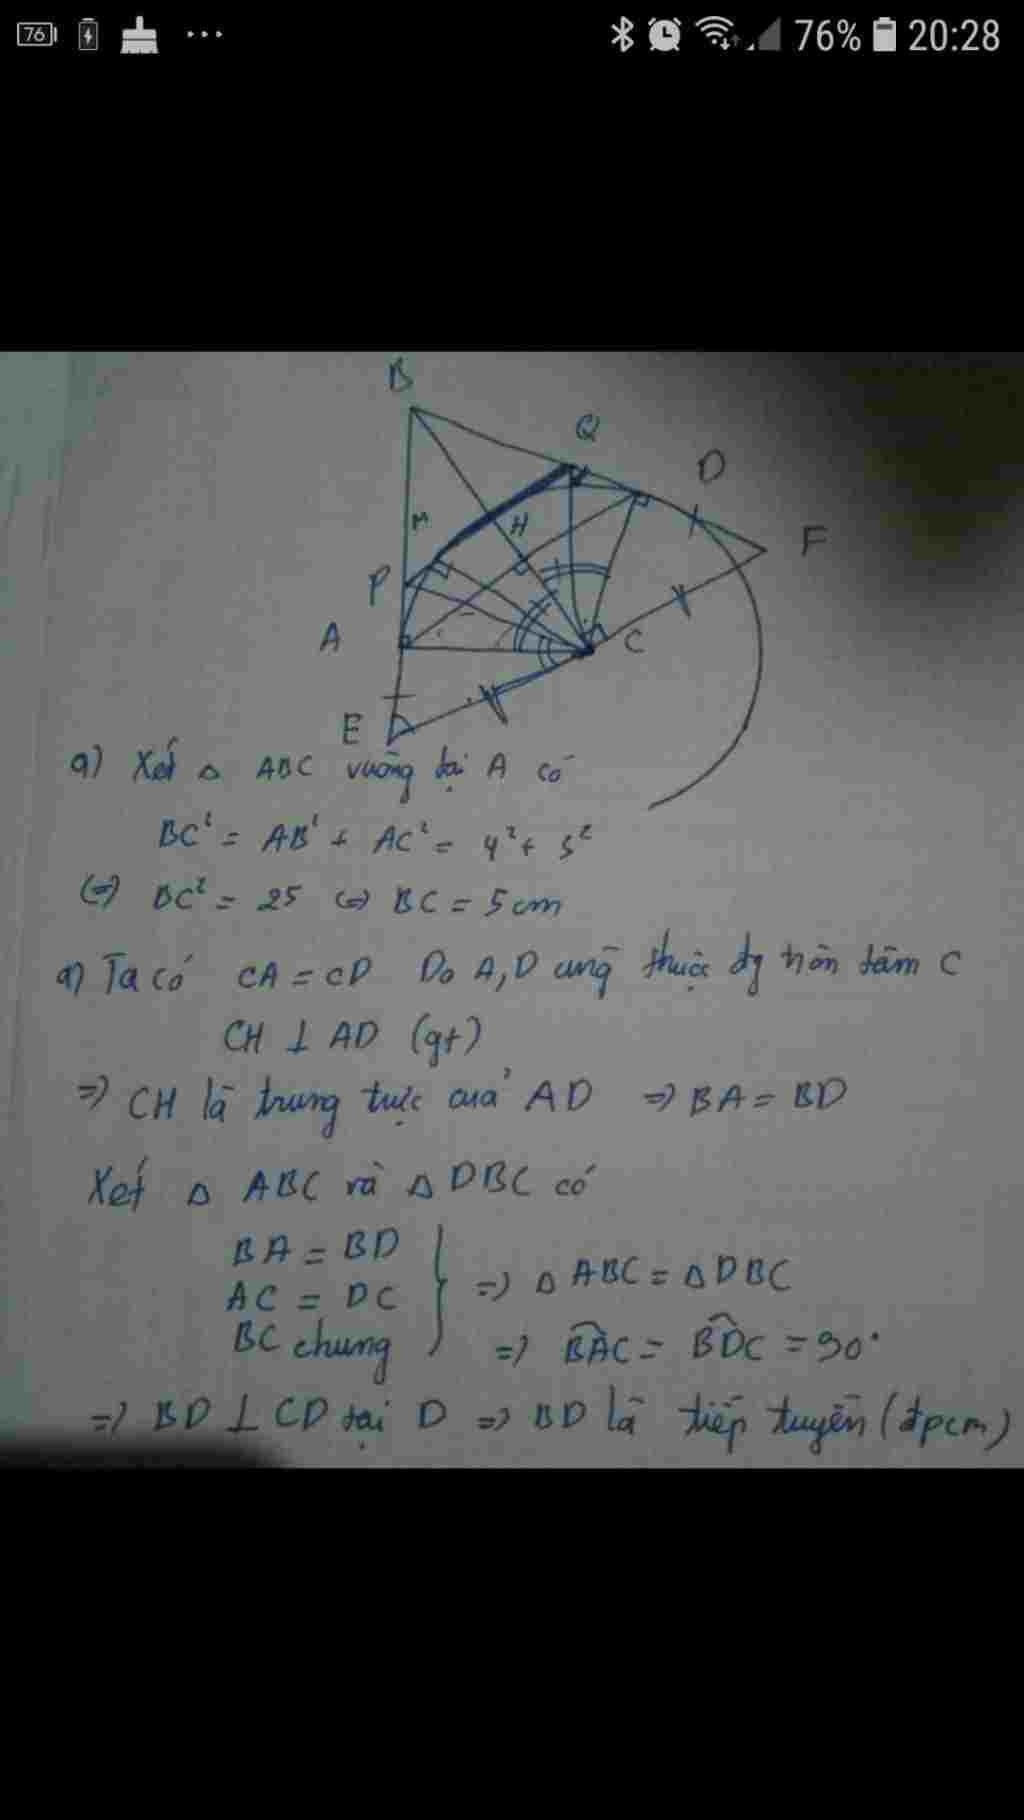 76 76% 20:28
B
Q
D
M
H
F
P
A
C
E
a) Xét Δ ABC vuông tại A có
BC² = AB² + AC² = 4² + 3²
(=) BC² = 25 (=) BC = 5cm
a) Ta có CA = CD Do A, D cùng thuộc đg tròn tâm C
CH ⊥ AD (gt)
=) CH là trung trực của AD =) BA = BD
Xét Δ ABC và Δ DBC có
BA = BD
AC = DC
BC chung
=) Δ ABC = Δ DBC
=) BAC = BDC = 90°
=) BD ⊥ CD tại D =) BD là tiếp tuyến (đpcm)